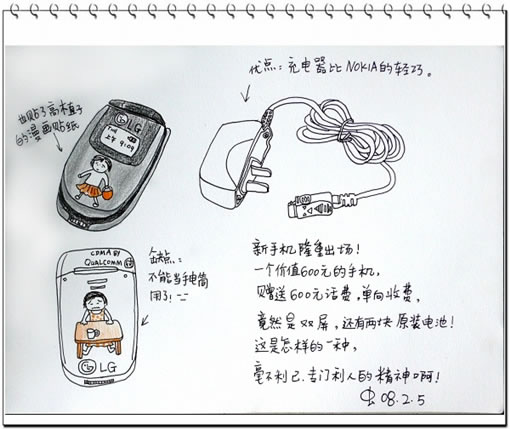 优点：充电器比NOKIA的轻巧。
也贴了高木直子
的漫画贴纸
LG
上午 9:09
CDMA BY
QUALCOMM
LG
缺点：
不能当手电筒
用了！
新手机隆重出场！
一个价值600元的手机，
赠送600元话费，单向收费，
竟然是双屏，还有两块原装电池！
这是怎样的一种，
毫不利己、专门利人的精神啊！
08.2.5